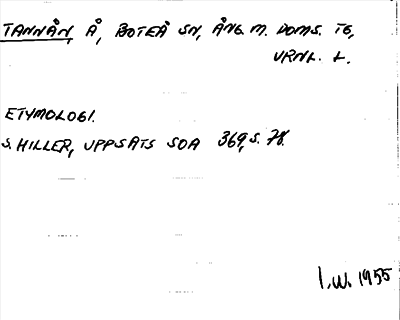 TANNÅN, Å, BOTEÅ SN, ÅNG. M. DOMS. TG,
VRNL. L.
ETYMOLOGI.
S. HILLER, UPPSATS SOA 369, S. 78.
I.W. 1955